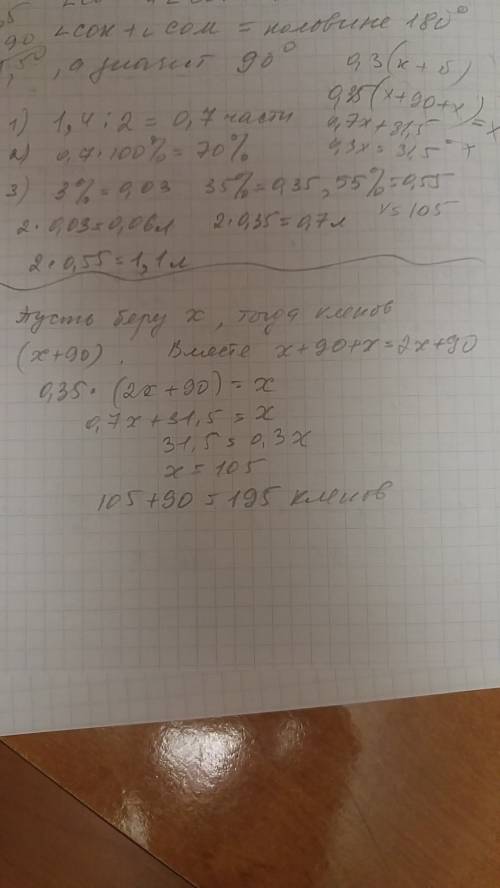 ∠СОК + ∠СОМ = половине 180°
90
, а значит 90°
0,3(x + 5)
0,35(x+90+x) = x
1) 1,4 : 2 = 0,7 части
0,7x + 31,5 = x
2) 0,7 · 100% = 70%
0,3x = 31,5
3) 3% = 0,03 35% = 0,35, 55% = 0,55
x = 105
2 · 0,03 = 0,06 л 2 · 0,35 = 0,7 л
2 · 0,55 = 1,1 л
Пусть беру x, тогда кленов
(x+90). Вместе x+90+x=2x+90
0,35 · (2x + 90) = x
0,7x + 31,5 = x
31,5 = 0,3x
x = 105
105 + 90 = 195 кленов